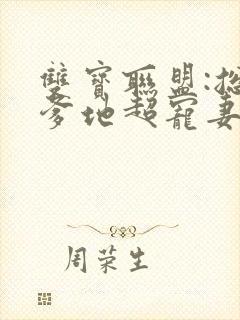 雙寶聯盟:總
爹地超寵妻
周荣生